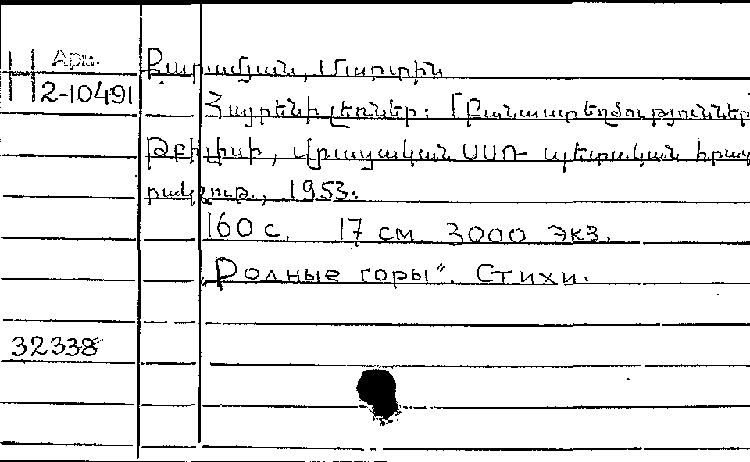 Арм.
H
2-10491
Քարամյան, Մարտին
Հայրենի լեռներ: [Բանաստեղծություններ
Թբիլիսի, Վրացական ՍՍՌ պետական հրատ
1953.
160 с. 17 см 3000 экз.
„Родные горы". Стихи.
32338